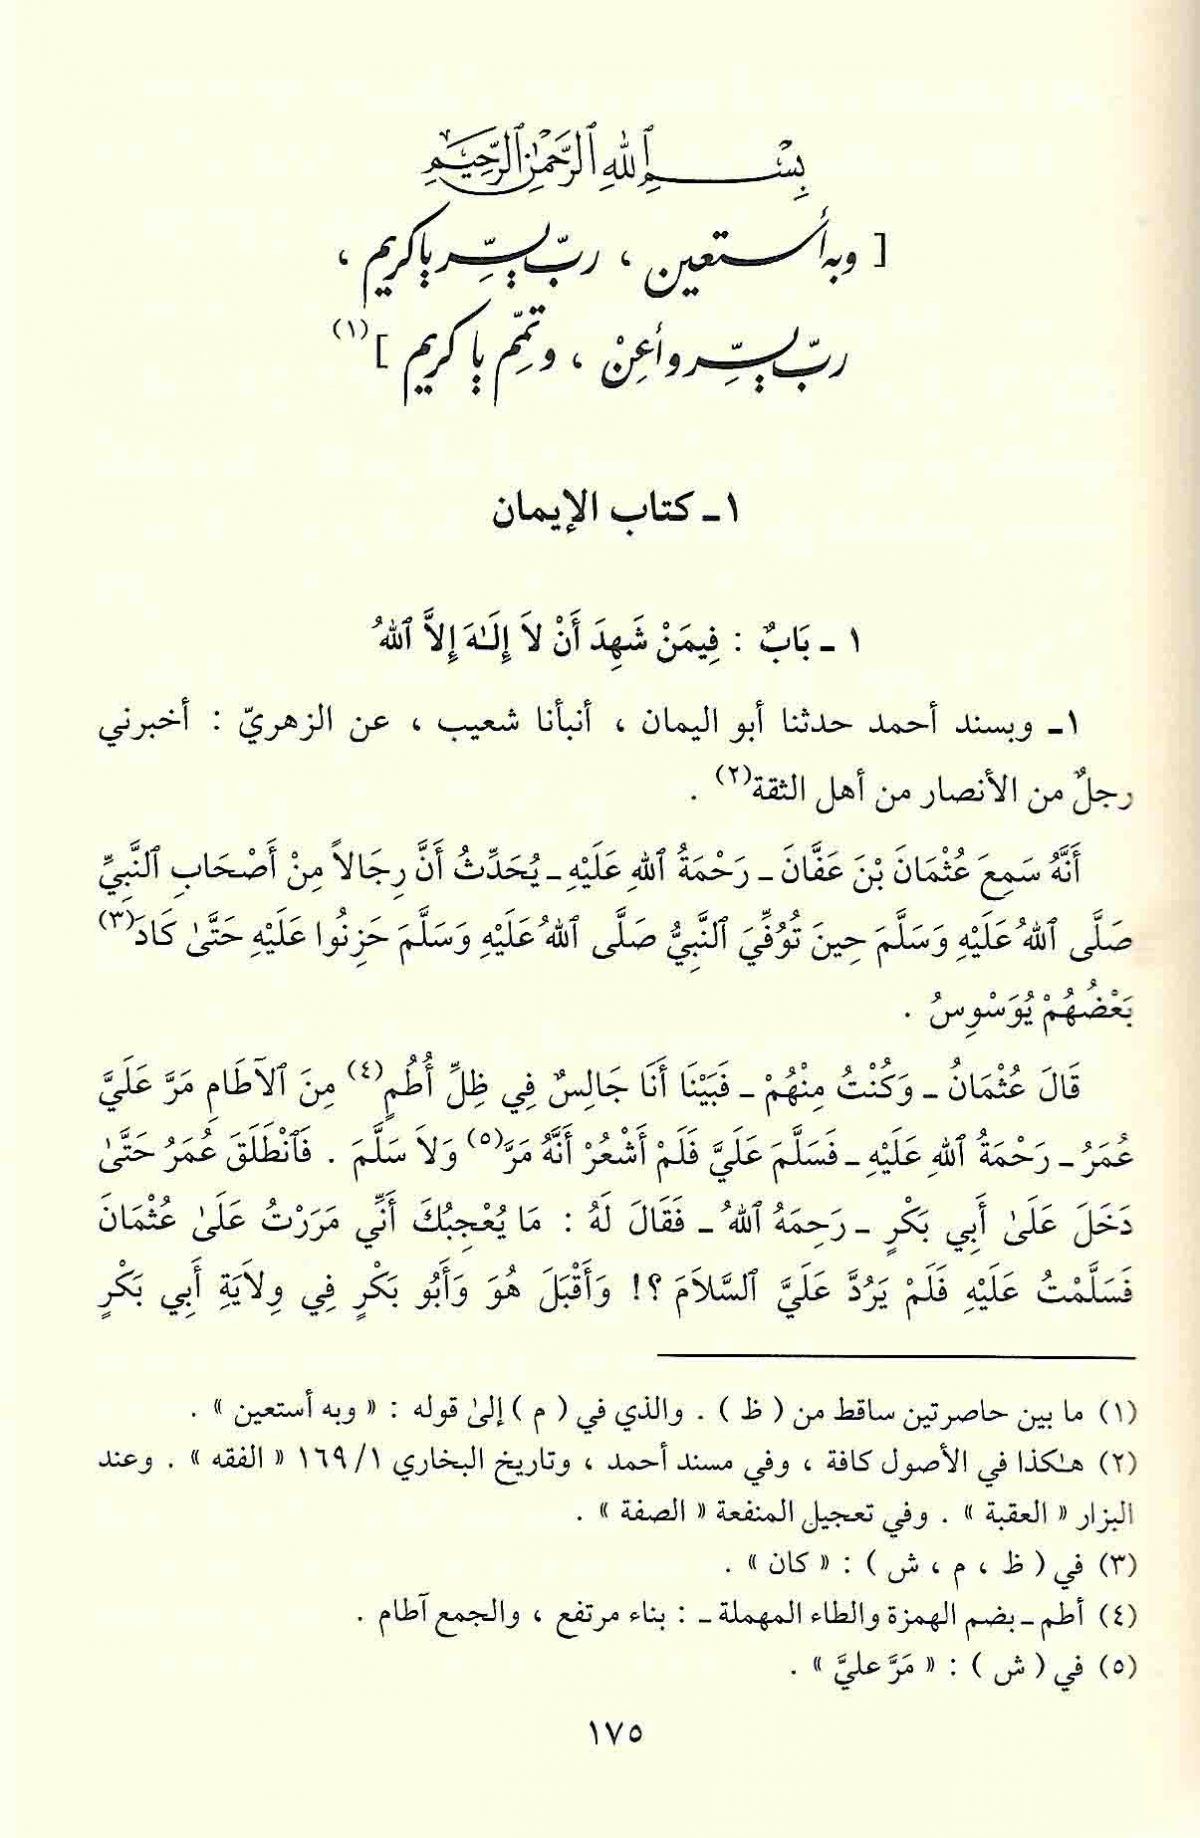 بِسْمِ ٱللهِ ٱلرَّحْمَٰنِ ٱلرَّحِيمِ
[ وبه أستعين ، ربّ يسِّر يا كريم ،
ربّ يسِّر وأعِنْ ، وتمِّم يا كريم ](١)
١ـ كتاب الإيمان
١ ـ بَابٌ : فِيمَنْ شَهِدَ أَنْ لاَ إِلَـٰهَ إِلاَّ ٱللهُ
١ـ وبسند أحمد حدثنا أبو اليمان ، أنبأنا شعيب ، عن الزهريّ : أخبرني
رجلٌ من الأنصار من أهل الثقة(٢) .
أَنَّهُ سَمِعَ عُثْمَانَ بْنَ عَفَّانَ ـ رَحْمَةُ ٱللهِ عَلَيْهِ ـ يُحَدِّثُ أَنَّ رِجَالاً مِنْ أَصْحَابِ ٱلنَّبِيِّ
صَلَّى ٱللهُ عَلَيْهِ وَسَلَّمَ حِينَ تُوُفِّيَ ٱلنَّبِيُّ صَلَّى ٱللهُ عَلَيْهِ وَسَلَّمَ حَزِنُوا عَلَيْهِ حَتَّىٰ كَادَ(٣)
بَعْضُهُمْ يُوَسْوِسُ .
قَالَ عُثْمَانُ ـ وَكُنْتُ مِنْهُمْ ـ فَبَيْنَا أَنَا جَالِسٌ فِي ظِلِّ أُطُمٍ(٤) مِنَ ٱلآطَامِ مَرَّ عَلَيَّ
عُمَرُ ـ رَحْمَةُ ٱللهِ عَلَيْهِ ـ فَسَلَّمَ عَلَيَّ فَلَمْ أَشْعُرْ أَنَّهُ مَرَّ(٥) وَلاَ سَلَّمَ . فَٱنْطَلَقَ عُمَرُ حَتَّىٰ
دَخَلَ عَلَىٰ أَبِي بَكْرٍ ـ رَحِمَهُ ٱللهُ ـ فَقَالَ لَهُ : مَا يُعْجِبُكَ أَنِّي مَرَرْتُ عَلَىٰ عُثْمَانَ
فَسَلَّمْتُ عَلَيْهِ فَلَمْ يَرُدَّ عَلَيَّ ٱلسَّلاَمَ ؟! وَأَقْبَلَ هُوَ وَأَبُو بَكْرٍ فِي وِلاَيَةِ أَبِي بَكْرٍ
(١) ما بين حاصرتين ساقط من ( ظ ) . والذي في ( م ) إلىٰ قوله : « وبه أستعين » .
(٢) هـٰكذا في الأصول كافة ، وفي مسند أحمد ، وتاريخ البخاري ١٦٩/١ « الفقه » . وعند
البزار « العقبة » . وفي تعجيل المنفعة « الصفة » .
(٣) في ( ظ ، م ، ش ) : « كان » .
(٤) أطم ـ بضم الهمزة والطاء المهملة ـ : بناء مرتفع ، والجمع آطام .
(٥) في ( ش ) : « مَرَّ عليَّ » .
١٧٥